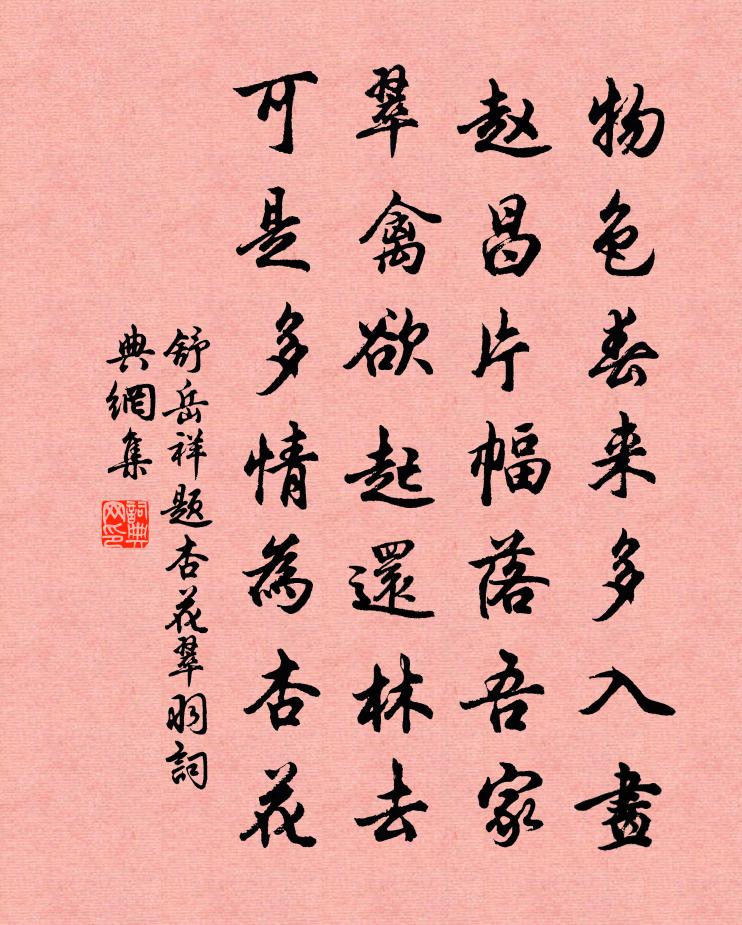 物色春来多入畫
赵昌片幅落吾家
翠禽欲起還林去
可是多情為杏花
舒岳祥题杏花翠羽詞
典網集
詞典
网印